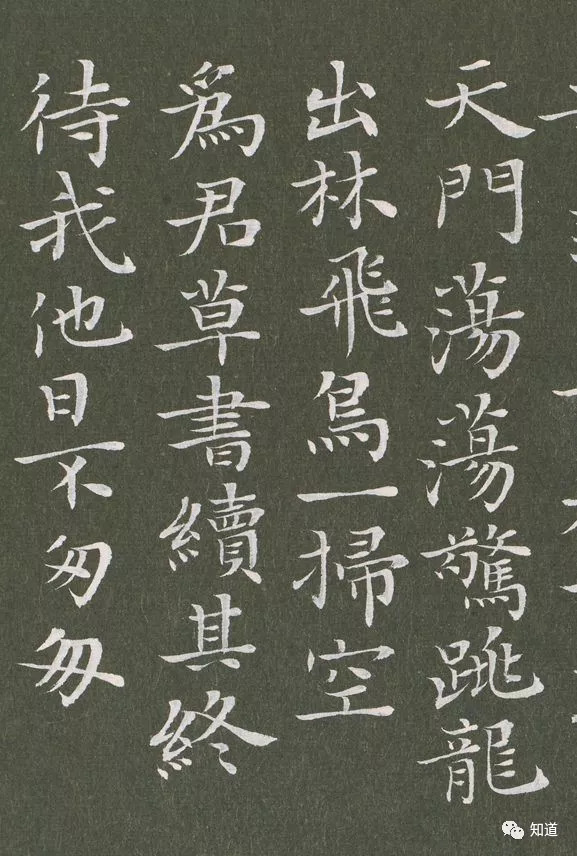 天門蕩蕩驚跳龍
出林飛鳥一掃空
爲君草書續其終
待我他日不匆匆
知道